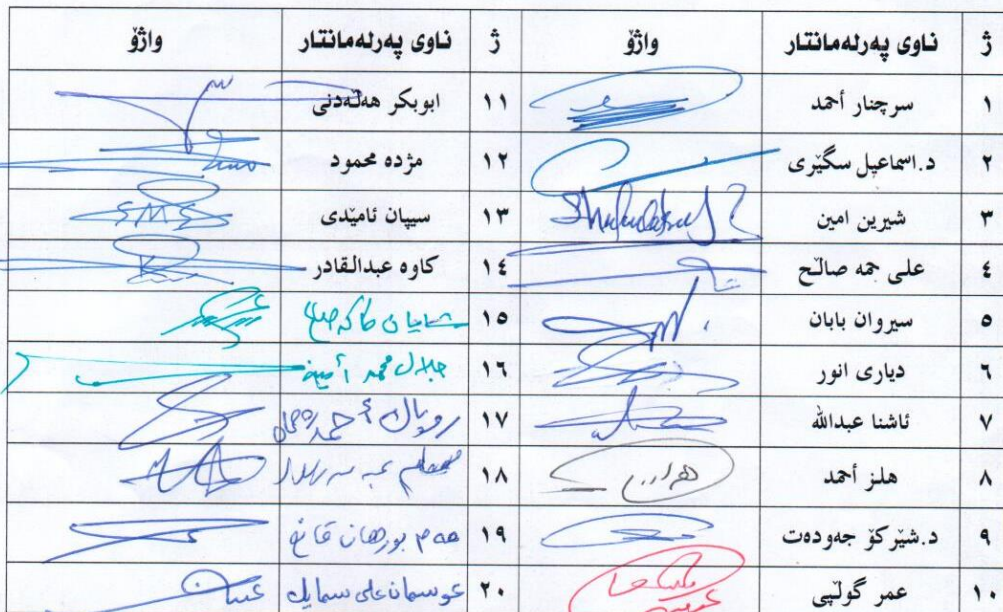 ژ ناوی پەرلەمانتار واژۆ ژ ناوی پەرلەمانتار واژۆ
١ سرچنار أحمد ١١ ابوبکر هەڵەدنی
٢ د.اسماعیل سگێری ١٢ مژده محمود
٣ شیرین امین ١٣ سیپان ئامێدی
٤ علی حمه صاڵح ١٤ کاوه عبدالقادر
٥ سیروان بابان ١٥ شایان
٦ دیاری انور ١٦ جلال محمد أمین
٧ ئاشنا عبدالله ١٧ روپاك أحمد
٨ هلز أحمد ١٨
٩ د.شێرکۆ جەودەت ١٩ بورهان قانع
١٠ عمر گوڵپی ٢٠ عوسمان علی سمایل